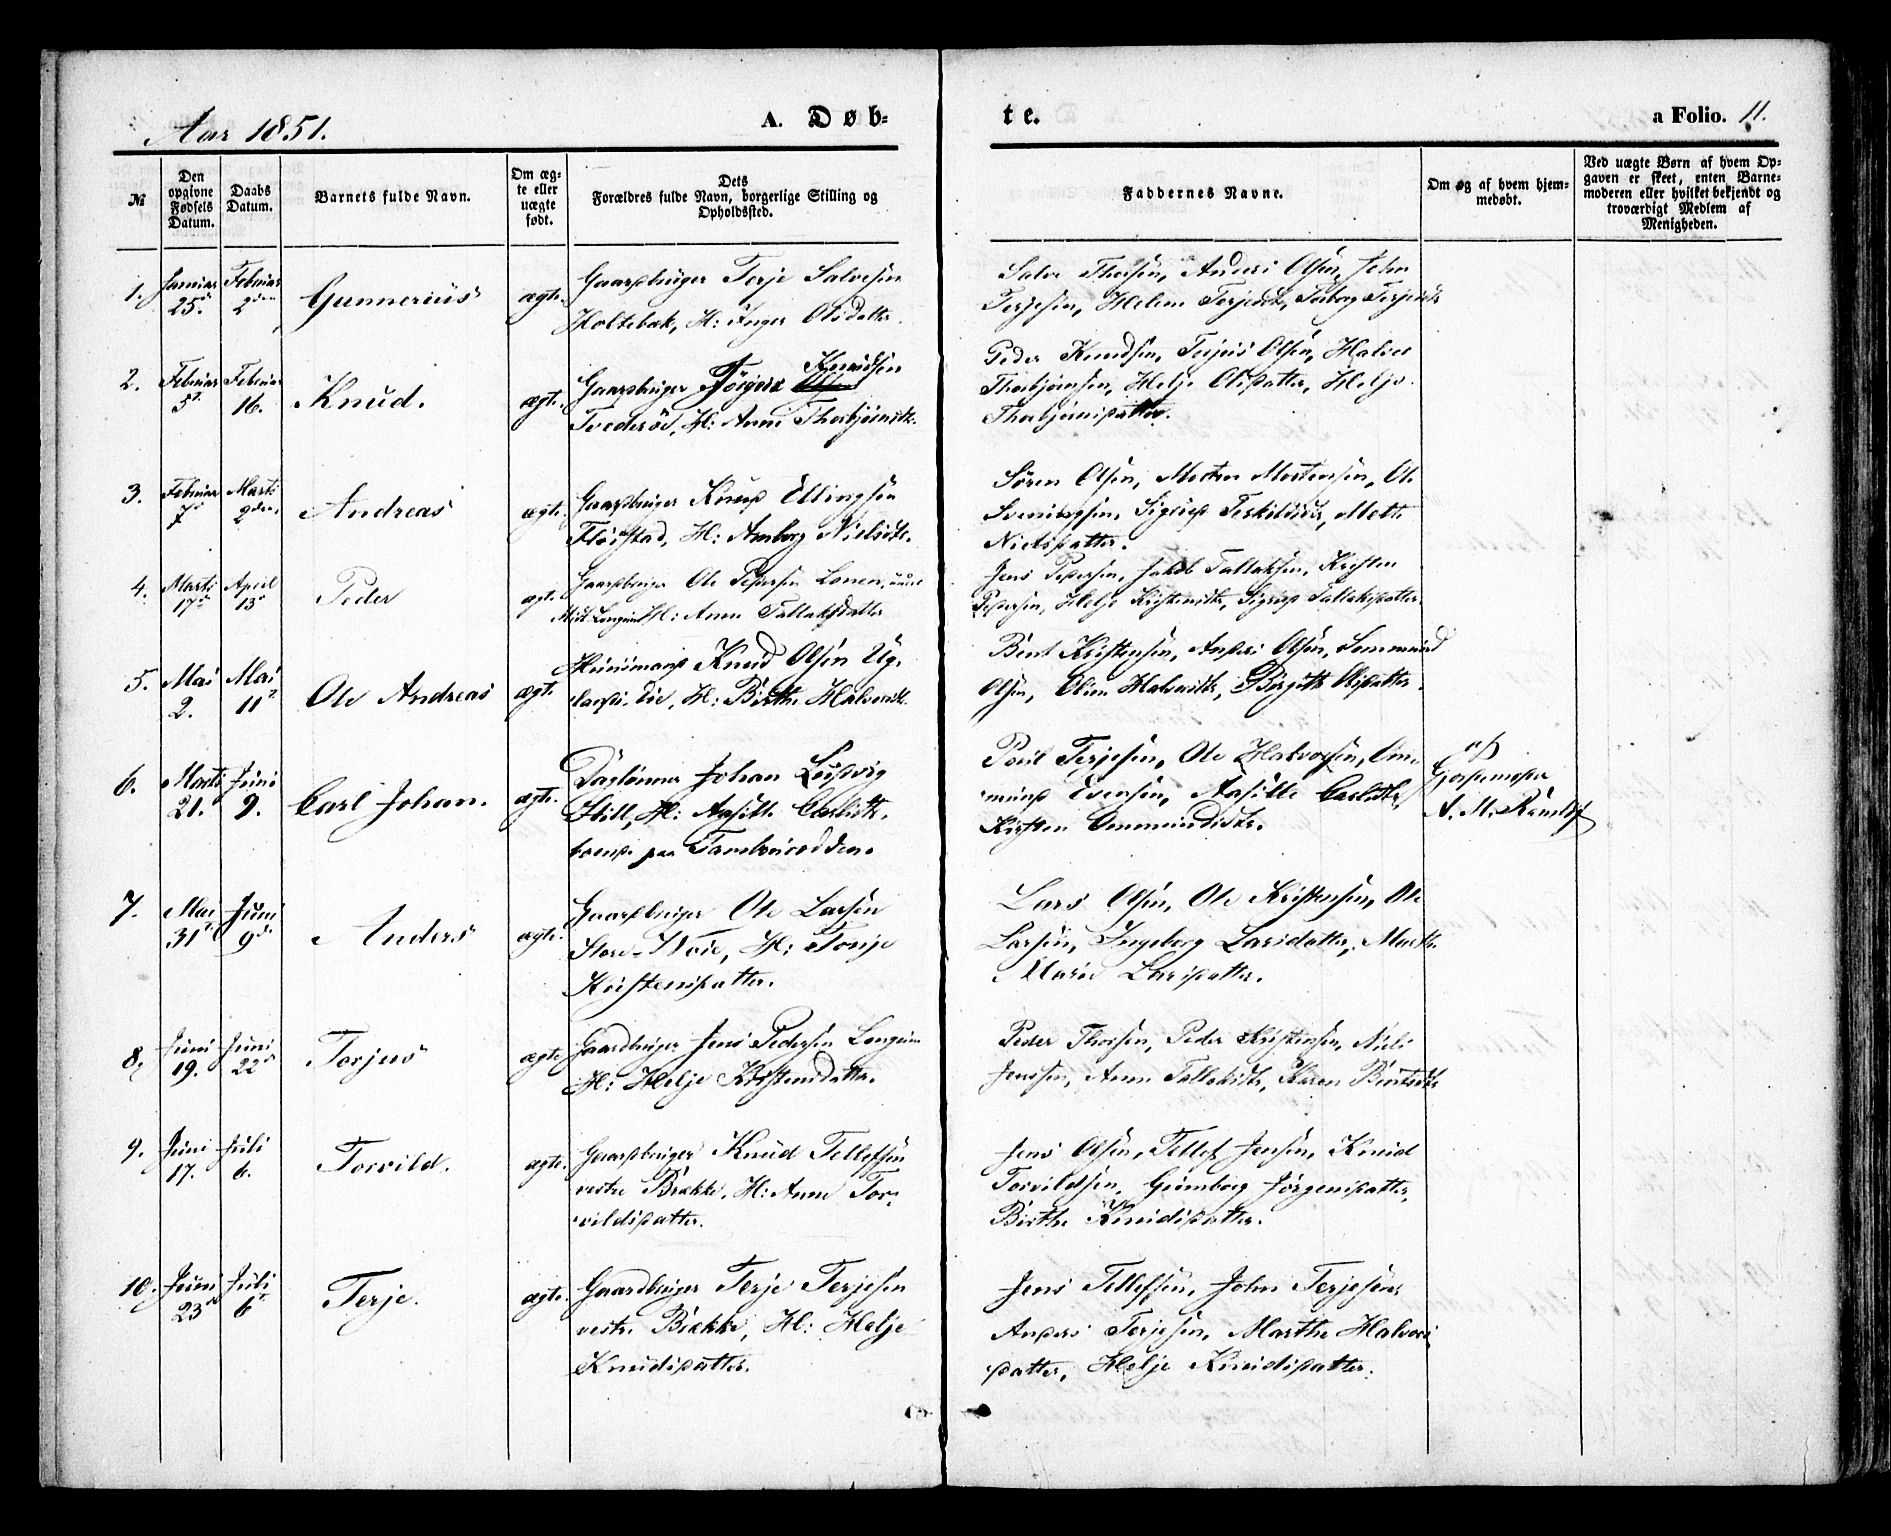 Aar 1851.
A. Døb-
te.
a Folio. 11.
№
Den opgivne Fødsels Datum.
Daabs Datum.
Barnets fulde Navn.
Om ægte eller uægte født.
Dets Forældres fulde Navn, borgerlige Stilling og Opholdssted.
Faddernes Navne.
Om og af hvem hjemmedøbt.
Ved uægte Børn af hvem Opgaven er skeet, enten Barnemoderen eller hvilket bekjendt og troværdigt Medlem af Menigheden.
1. Januar 25d Februar 2den Gunnerius ægte. Gaardbruger Terje Salvesen
Holtebæk, H: Inger Olsdatter.
Salve Thorsen, Anders Olsen, John
Terjesen, Helene Terjedtr, Torborg Terjedtr
2. Februar 5t Februar 16. Knud. ægte. Gaardbruger Jörgen Knudsen
Tvederød, H: Anne Thorbjörnsdtr.
Peder Knudsen, Terjus Olsen, Halvor
Thorbjörnsen, Helje Olsdatter, Helje
Thorbjörnsdatter.
3. Februar 7d Marts 2den Andreas ægte. Gaardbruger Knud Ellingsen
Flørstad, H: Amborg Nielsdtr.
Sören Olsen, Morten Mortensen, Ole
Svenibersen, Sigrid Terkildsdtr, Mette
Nielsdatter.
4. Marts 17d April 13d Peder ægte. Gaardbruger Ole Pedersen Lonen, under
Midt-Longum H: Anne Tallaksdatter
Jens Pedersen, Jakob Tallaksen, Kristen
Pedersen, Helje Kristensdtr, Sigrid Tallaksdatter.
5. Mai 2. Mai 11t Ole Andreas ægte. Huusmand Knud Olsen Ug-
H: Birthe Halvorsdtr.
Bent Kristensen, Anders Olsen, Semmund
Olsen, Oline Halvorsdtr, Birgitte Olsdatter.
6. Marts 21. Juni 9. Carl Johan. ægte. Daglönner Johan Ludvig
Hill, H: Aasille Carlsdtr.
boende paa
Poul Terjesen, Ole Halvorsen, Om-
mund Evensen, Aasille Carlsdtr,
Kirsten Ommundsdtr.
af
Gjordemoder
A. M.
7. Mai 31t Juni 9d. Anders ægte. Gaardbruger Ole Larsen
Store-Noie, H: Tonje
Kristensdatter.
Lars Olsen, Ole Kristensen, Ole
Larsen, Ingeborg Larsdatter, Marthe
Marie Larsdatter.
8. Juni 19. Juni 22d Torjus ægte Gaardbruger Jens Pedersen Longum
H: Helje Kristensdatter.
Peder Thorsen, Peder Kristensen, Niels
Jenssen, Anne Tallaksdtr, Karen Bentsdtr
9. Juni 17. Juli 6. Torvild. ægte. Gaardbruger Knud Tellefsen
vestre Brække, H: Anne Tor-
vildsdatter.
Jens Olsen, Tellef Jensen, Knud
Torvildsen, Gunborg Jörgensdatter,
Birthe Knudsdatter.
10. Juni 23d Juli 6t Terje. ægte. Gaardbruger Terje Terjesen
vestre Brække, H: Helje
Knudsdatter.
Jens Tellefsen, John Terjesen
Anders Terjesen, Marthe Halvors-
datter, Helje Knudsdatter.